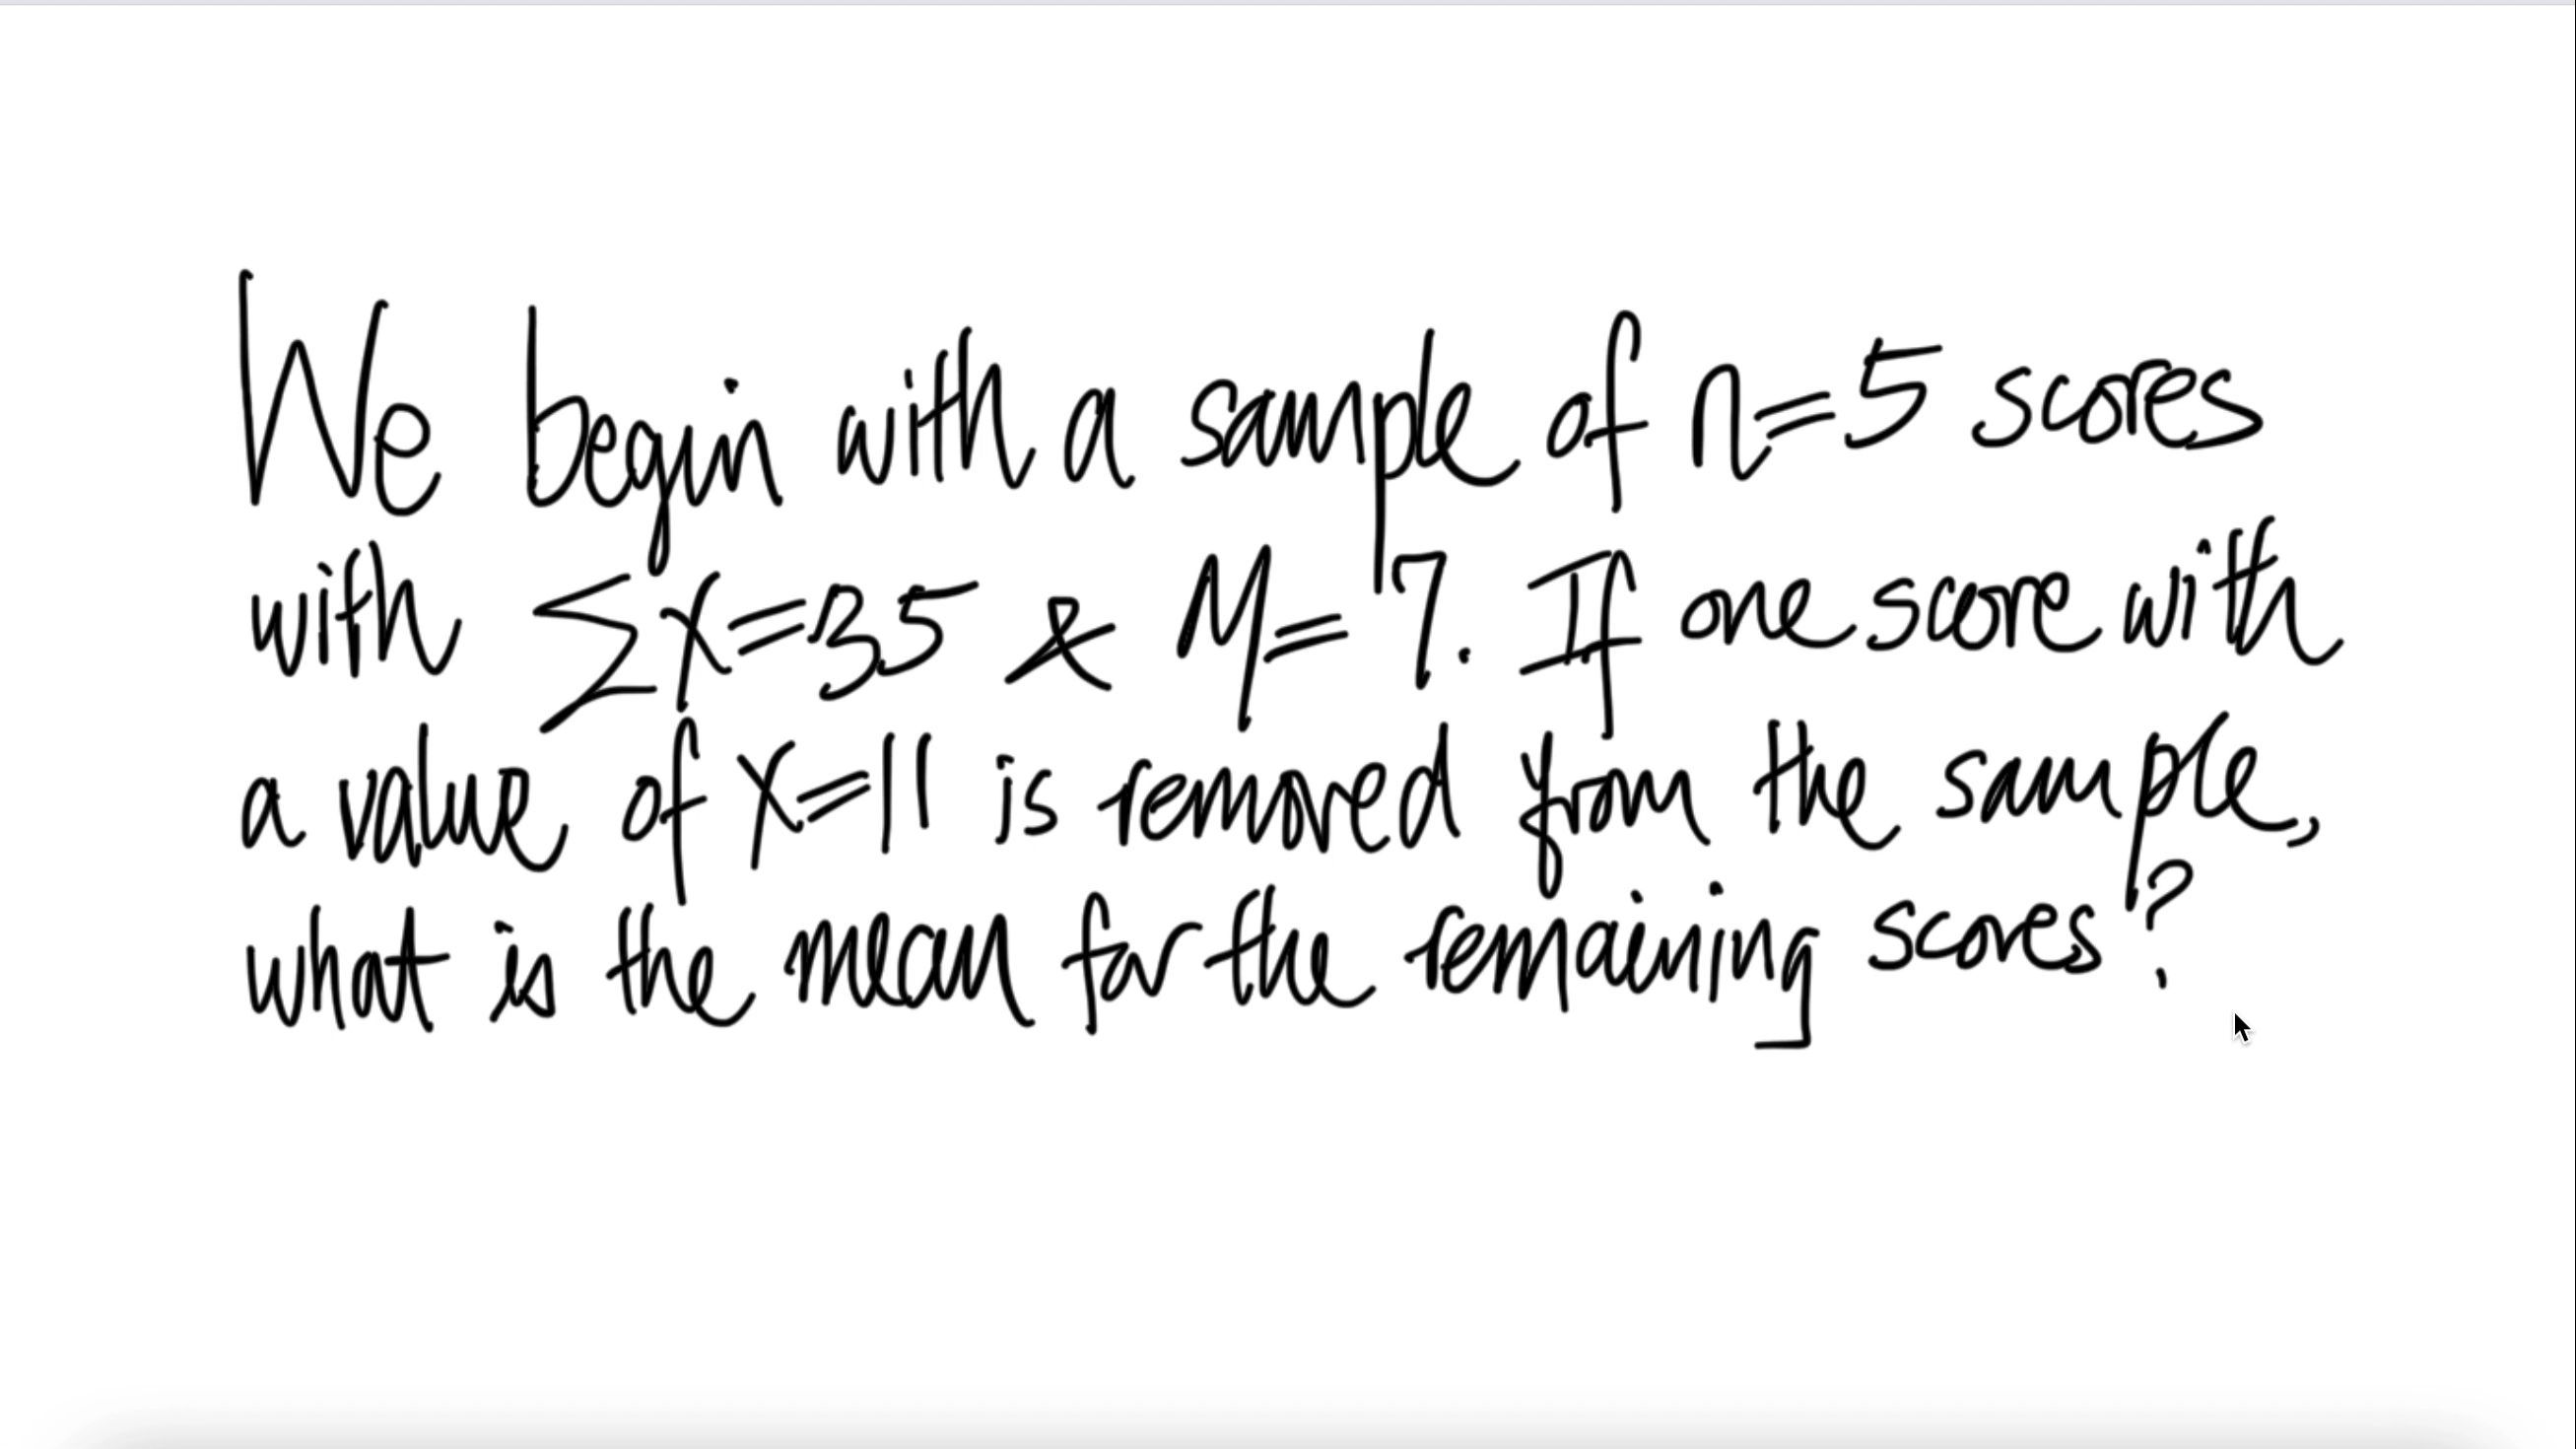 We begin with a sample of n=5 scores
with ΣX=35 & M=7. If one score with
a value of X=11 is removed from the sample,
what is the mean for the remaining scores?